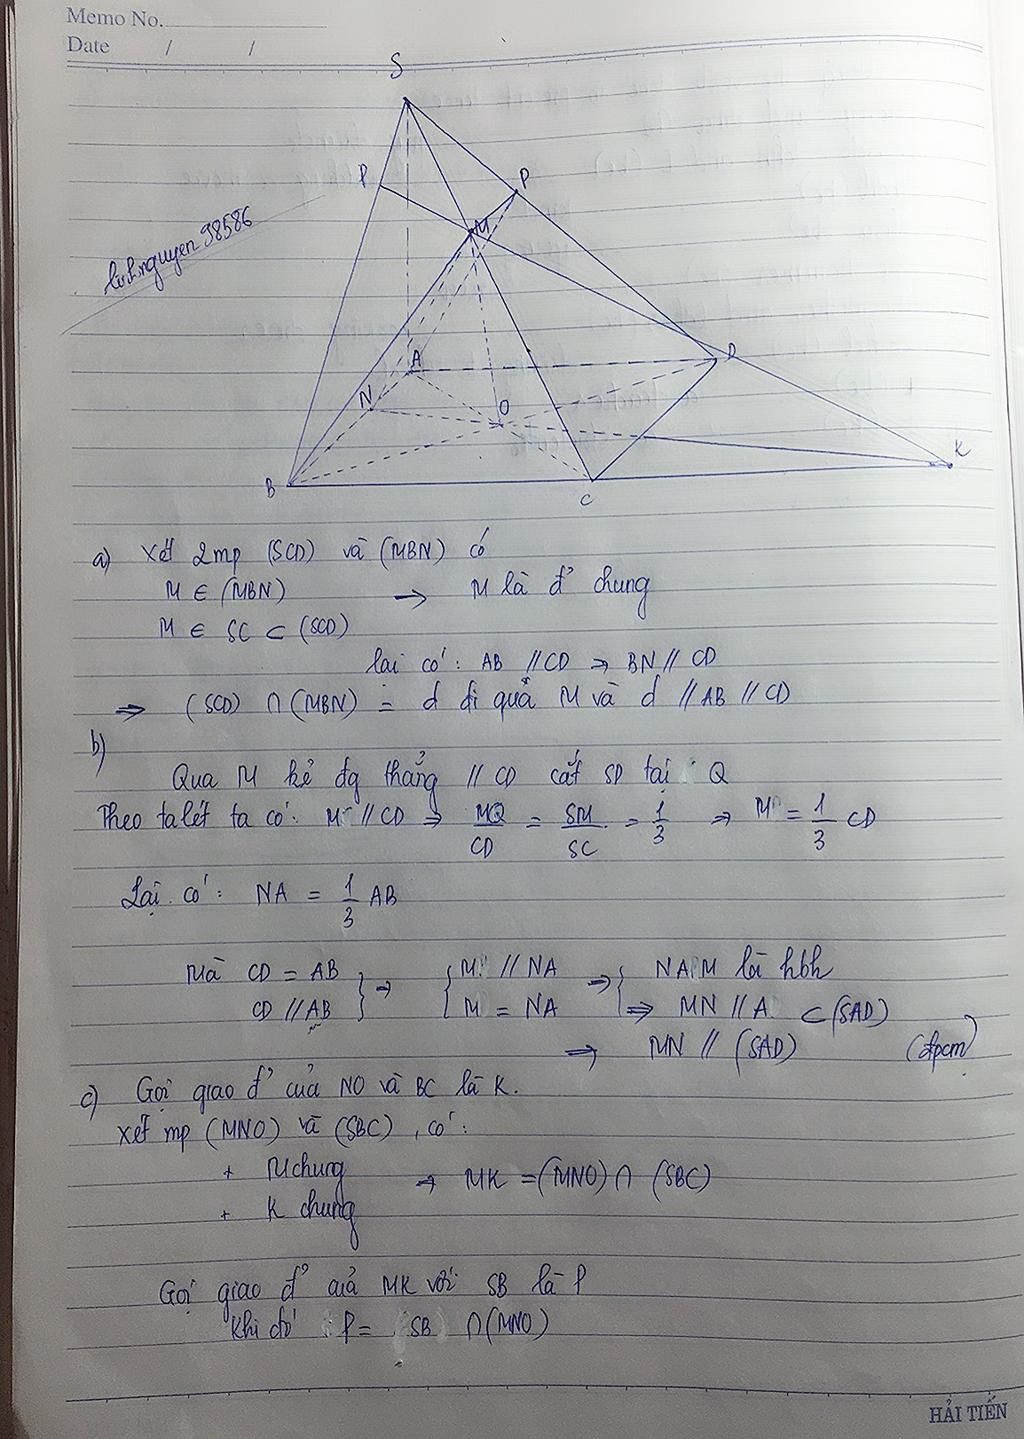 Memo No.
Date / /
S
P
P
M
linhnguyen98586
A
D
N
O
K
B
C
a) Xét 2mp (SCD) và (MBN) có
M ∈ (MBN) → M là đ' chung
M ∈ SC ⊂ (SCD)
lại có: AB // CD ⇒ BN // CD
⇒ (SCD) ∩ (MBN) = d đi qua M và d // AB // CD
b)
Qua M kẻ đg thẳng // CD cắt SD tại Q
Theo talét ta có: M // CD ⇒ MQ/CD = SM/SC = 1/3 ⇒ M = 1/3 CD
Lại có: NA = 1/3 AB
Mà CD = AB } ⇒ { M // NA ⇒ { NA M là hbh
CD // AB M = NA ⇒ MN // A ⊂ (SAD)
⇒ MN // (SAD) (đpcm)
c) Gọi giao đ' của NO và BC là K.
Xét mp (MNO) và (SBC), có:
+ M chung → MK = (MNO) ∩ (SBC)
+ K chung
Gọi giao đ' của MK với SB là P
Khi đó : P = SB ∩ (MNO)
HẢI TIẾN